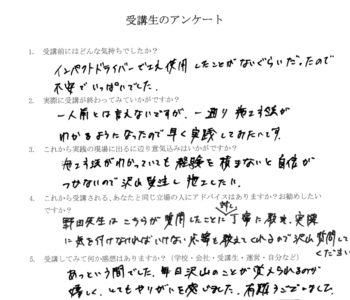 受講生のアンケート
1. 受講前にはどんな気持ちでしたか?
インパクトドライバーでさえ使用したことがないぐらいだったので
不安でいっぱいでした。
2. 実際に受講が終わってみていかがですか?
一人前とは言えないですが、一通り施工手法が
わかるようになったので早く実践してみたいです。
3. これから実践の現場に出るに辺り意気込みはいかがですか?
施工手法がわかっていても経験を積まないと自信が
つかないので沢山発注し施工したい。
4. これから受講される、あなたと同じ立場の人にアドバイスはありますか?お勧めしたいですか?
野田先生はこちらが質問したことに対し丁寧に教え、実際
に気を付けなければいけない事等を教えてくれるので沢山質問して
ください
5. 受講してみて何か感想はありますか?(学校・会社・受講生・運営・自分など)
あっという間でした。毎日沢山のことが覚えられるのが
嬉しく、とてもやりがいを感じました。有難うございました。